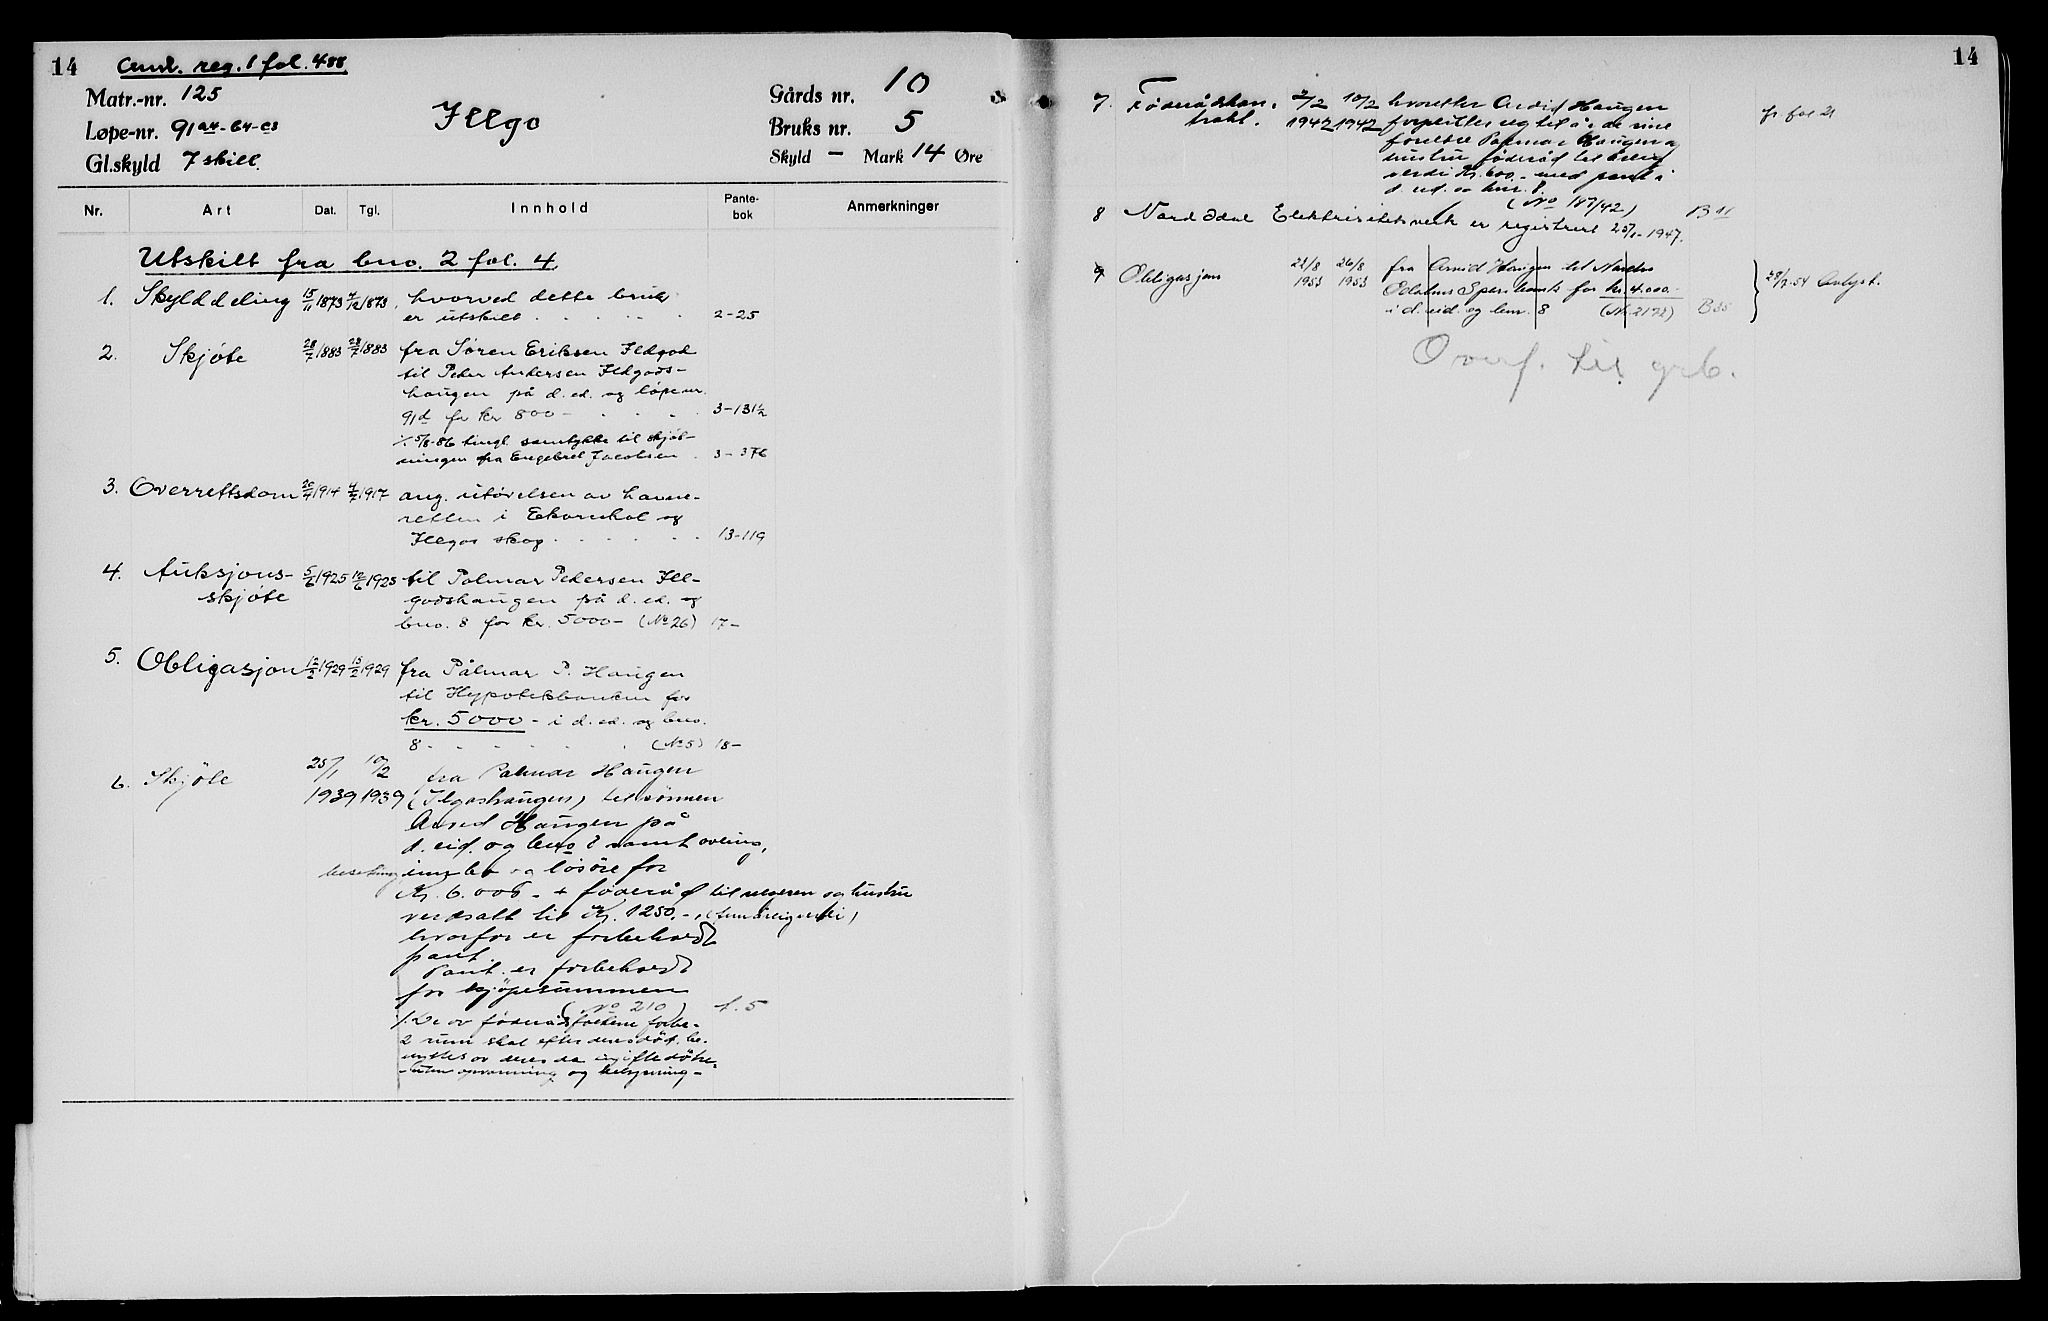 14
reg. 1 fol. 488
Matr.-nr. 125
Løpe-nr. 91
Gl.skyld 7 skill.
Illgo
Gårds nr. 10
Bruks nr. 5
Skyld – Mark 14 Øre
Nr. Art Dat. Tgl. Innhold Pante-bok Anmerkninger
Utskilt fra bno. 2 fol. 4.
1. Skylddeling 15/11 1873 4/12 1873, hvorved dette bruk
er utskilt . . . . . 2-25
2. Skjöte 28/7 1883 28/7 1883 fra Sören Eriksen Illgod
til Peder Andersen Illgods-
haugen på d. ed. og löpenr.
91d for kr 800 – . . . . 3-131½
5/8-86 tingl. samtykke til skjöt-
ningen fra Engebret Jacobsen . 3-376
3. Overrettsdom 20/4 1914 4/7 1917 ang. utövelsen av havne-
retten i Ekornhol og
Illgos skog . . . . . . 13-119
4. Auksjons-
skjöte 5/6 1925 12/6 1925 til Palmar Pedersen Ill-
godshaugen på d. ed. og
bno. 8 for kr. 5000 – (No 26) 17-
5. Obligasjon 12/2 1929 15/2 1929 fra Pålmar P. Haugen
til Hypotekbanken for
kr. 5000 – i d. ed. og bno.
8 . . . . . . (No 5) 18-
6. Skjöte 25/1 1939 10/2 1939 fra Palmar Haugen
(Ilgoshaugen) til sönnen
Arvid Haugen på
d. eid. og bno 8 samt
besetning og lösöre for
Kr. 6.000 – + föderåd til selgeren og hustru
verdsatt til Kr. 1250.–, (femårlig verdi)
hvorfor er forbeholdt
pant.
Pant er forbeholdt
for kjöpesummen
(No 210) 1.5
De av föderådsfolkene
2 rum skal efter deres död be-
nyttes av deres ugifte dötre
uten opvarming og belysning –
14
7. Föderådskon-
trakt. 2/2 1942 10/2 1942 hvoretter Arvid Haugen
forplikter seg til å de sine
foreldre Palmar Haugen og
hustru föderåd til årlig
verdi kr. 600.– med pant i
d. eid. og bnr. 8.
(No 187/42) B 11
8 Nord Odal Elektrisitetsverk er registrert 25/1-1947.
9 Obligasjon 22/8 1953 26/8 1953 fra Arvid Haugen til Nordre
Odalens Sparebank for kr. 4.000.–
i d. eid. og bnr. 8 (No 2172) B 35
28/7-54 Avlyst.
Overf. til grb.